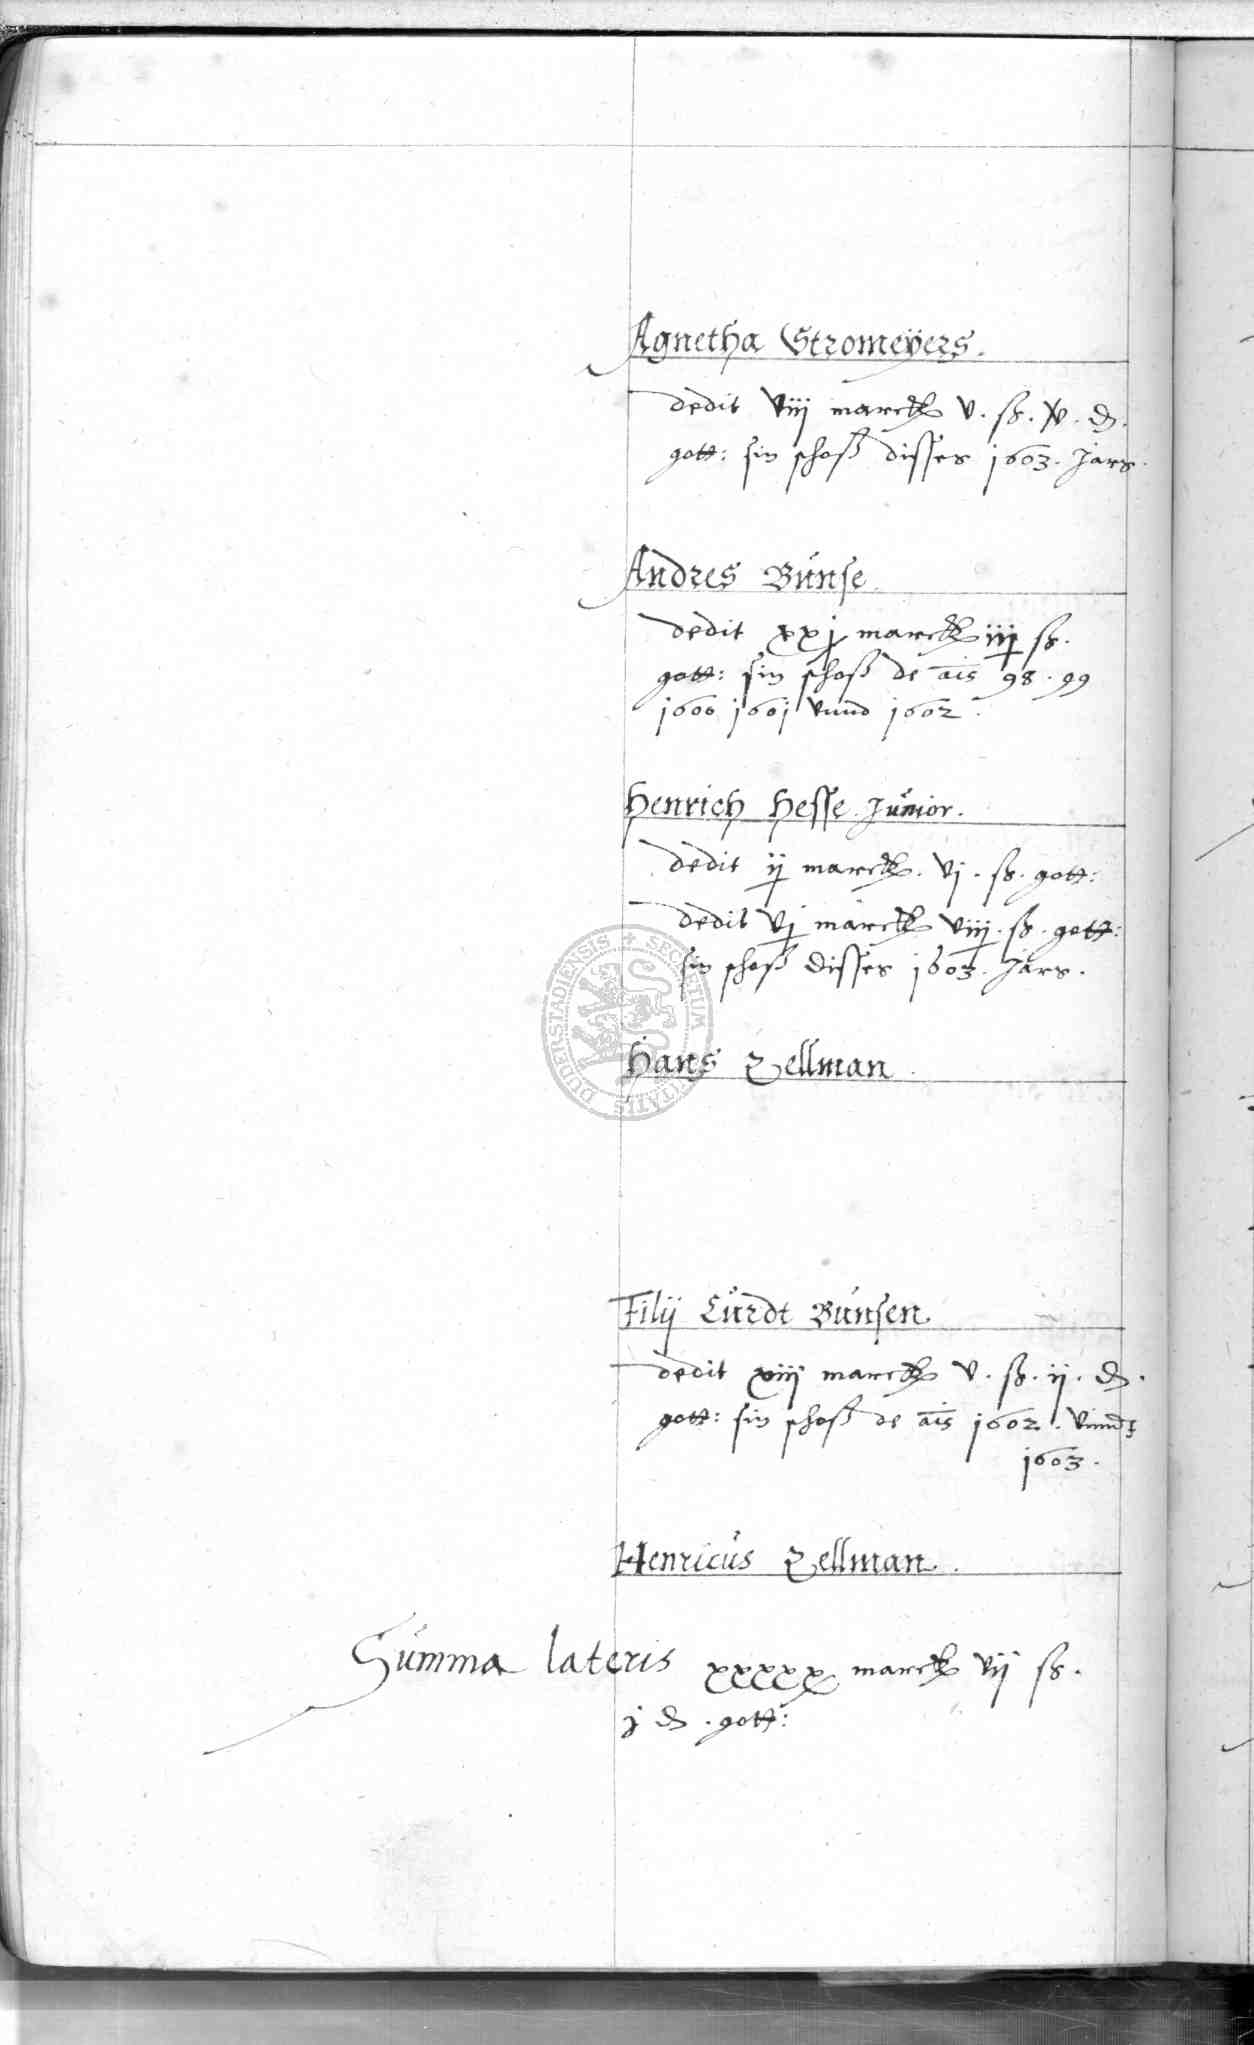 Agnetha Stromeÿers.
dedit viij marck v. ß. xv. ₰.
gott: sin schoß disses 1603. Jars.
Andres Bunse
dedit xxj marck iiij ß.
gott: sin schoß de ais 98. 99
1600 1601 vnnd 1602.
Henrich Hesse Junior.
dedit ij marck. vj. ß. gott:
dedit vj marck viiij. ß. gott:
sin schoß disses 1603. Jars.
SECRETUM CIVITATIS DUDERSTADIENSIS
Hans Zellman
Filij Curdt Bunsen
dedit xiij marck v. ß. ij. ₰.
gott: sin schoß de ais 1602. vnnd
1603.
Henricus Zellman.
Summa lateris xxxxx marck vij ß.
j ₰. gott: